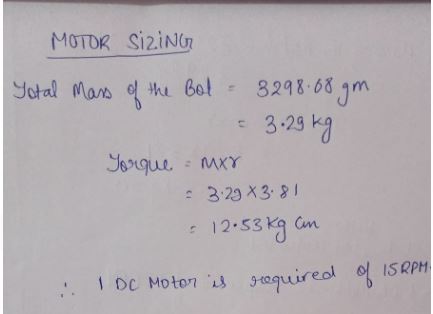 MOTOR SIZING
Total Mass of the Bot = 3298.68 gm
= 3.29 kg
Torque = M×r
= 3.29 × 3.81
= 12.53 kg cm
∴ 1 DC Motor is required of 15RPM.